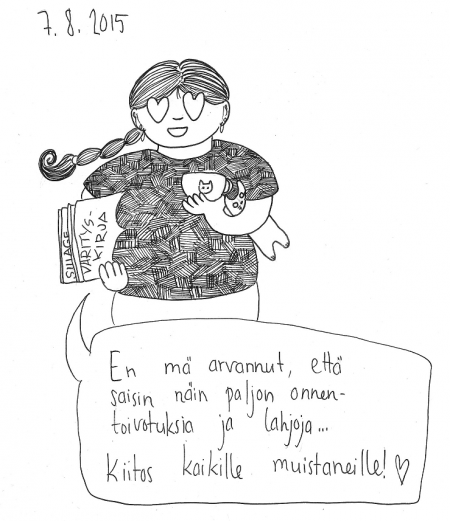 7.8.2015
SILLAGE
VÄRITYS-
KIRJA
En mä arvannut, että
saisin näin paljon onnen-
toivotuksia ja lahjoja...
Kiitos kaikille muistaneille! ♡